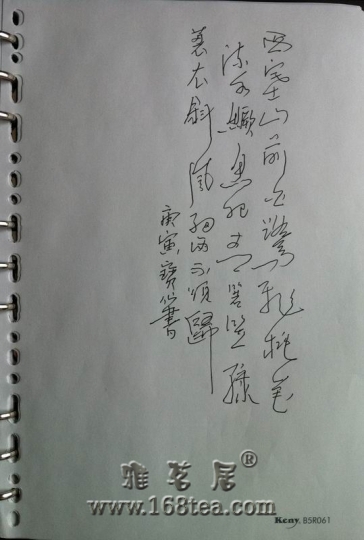 西塞山前白鹭飞桃花
流水鳜鱼肥青箬笠绿
蓑衣斜风细雨不须归
庚寅宝书
雅茗居®
www.168tea.com
Keny. B5R061